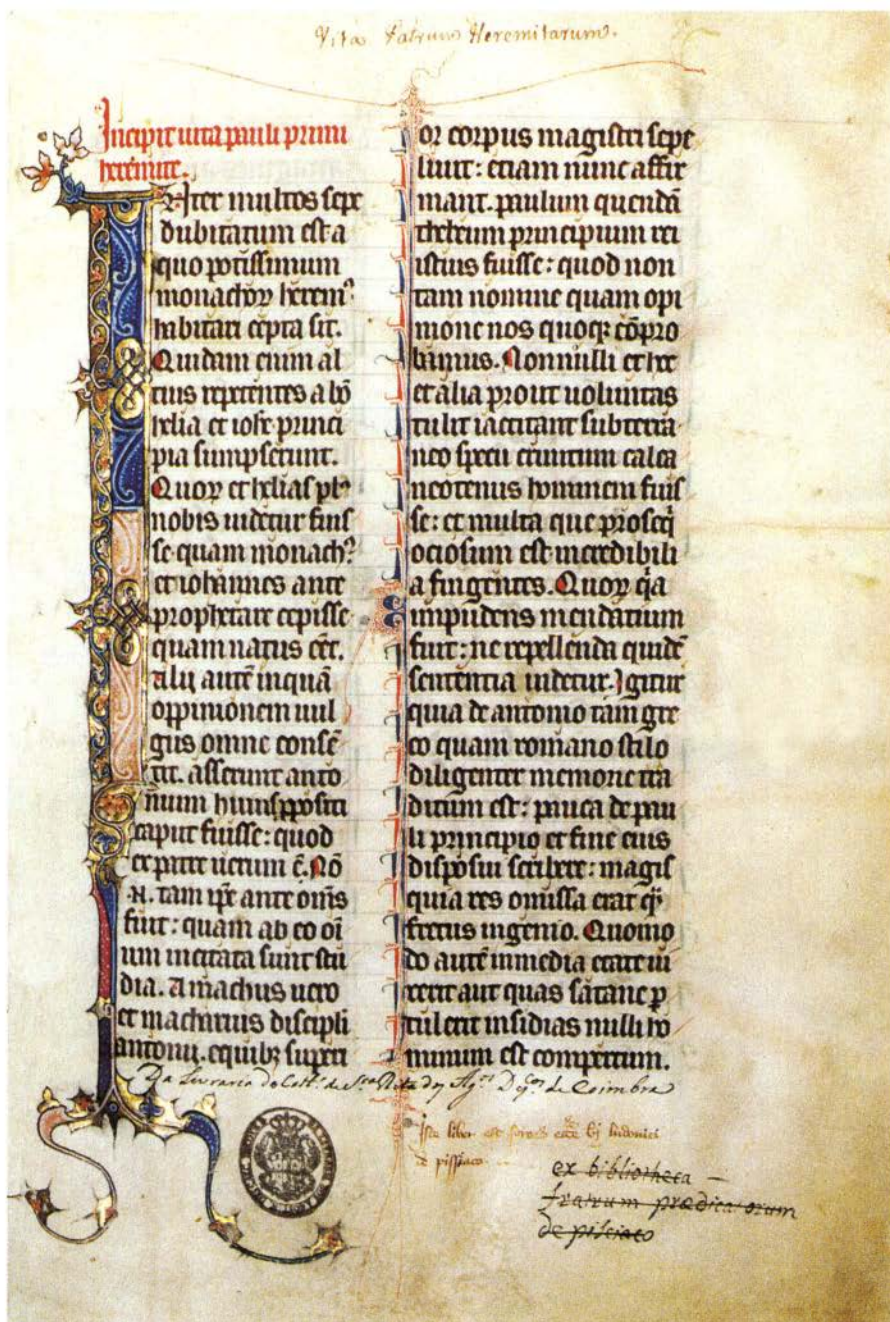 Vitas Patrum Heremitarum.
Incipit uita pauli primi
heremite.
Inter multos sepe
dubitatum est a
quo potissimum
monachoꝝ herem⁹
habitari cepta sit.
Quidam enim al
tius repetentes a bō
helia et iohe princi
pia sumpserunt.
Quoꝝ et helias plᵘˢ
nobis uidetur fuis
se quam monach⁹
et iohannes ante
prophetare cepisse
quam natus cēt.
Alij autē inquā
oppinionem uul
gus omne consē
tit. asserunt anto
nium huius ꝓpositi
caput fuisse: quod
ex parte uerum ē. Nō
.N. tam ipē ante omīs
fuit: quam ab eo oī
um incitata sunt stu
dia. Amachus uero
et macharius discipli
antonij. equibꝫ supeti
or corpus magistri sepe
liuit: etiam nunc affir
mant. paulum quendā
thebeum principium rei
istius fuisse: quod non
tam nomine quam opi
nione nos quoqꝫ cōpro
bamus. Nonnulli et hec
et alia prout uoluntas
tulit iactitant subterra
neo specu crinitum calca
neotenus hominem fuis
se: et multa que proseq̄
ociosum est incredibili
a fingentes. Quoꝝ qͣa
impudens mendatium
fuit: ne repellenda quidē
sententia uidetur. Igitur
quia de antonio tam gre
co quam romano stilo
diligenter memorie tra
ditum est: pauca de pau
li principio et fine eius
disposui scribere: magis
quia res omissa erat qͣ
fretus ingenio. Quomo
do autē in media etate ui
xerit aut quas sātane ꝑ
tulerit insidias nulli ho
minum est compertum.
Da Livraria do Collº. de Sta. Rita dos Agos. Dosos. de Coimbra
Iste liber est sororū ecce bi ludouici
de pissiaco
ex bibliotheca
fratrum prædicatorum
de pisciaco